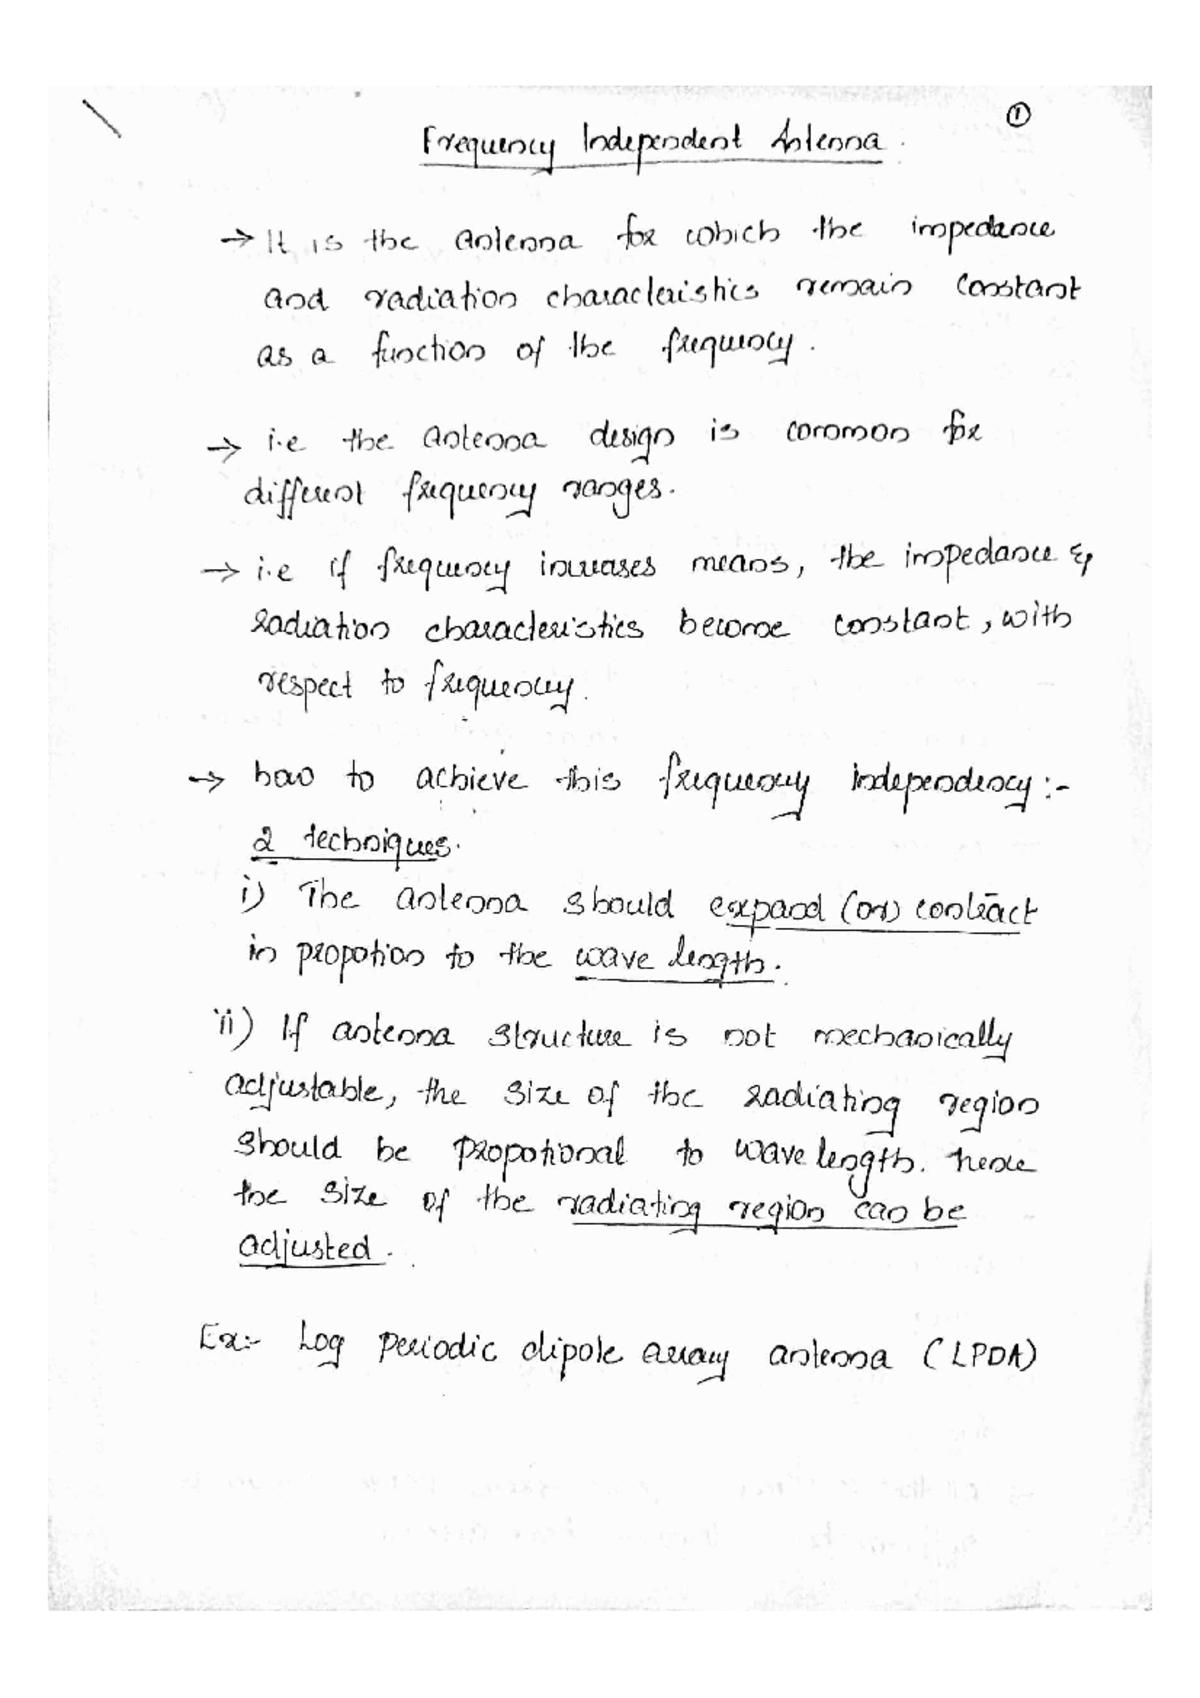 ①
Frequency Independent Antenna.
→ It is the antenna for which the impedance
and radiation characteristics remain constant
as a function of the frequency.
→ i.e the antenna design is common for
different frequency ranges.
→ i.e if frequency increases means, the impedance &
radiation characteristics become constant, with
respect to frequency.
→ how to achieve this frequency independency:-
2 techniques.
i) The antenna should expand (or) contract
in propotion to the wave length.
ii) If antenna structure is not mechanically
adjustable, the size of the radiating region
should be propotional to wave length. hence
the size of the radiating region can be
adjusted.
Ex:- Log periodic dipole array antenna (LPDA)